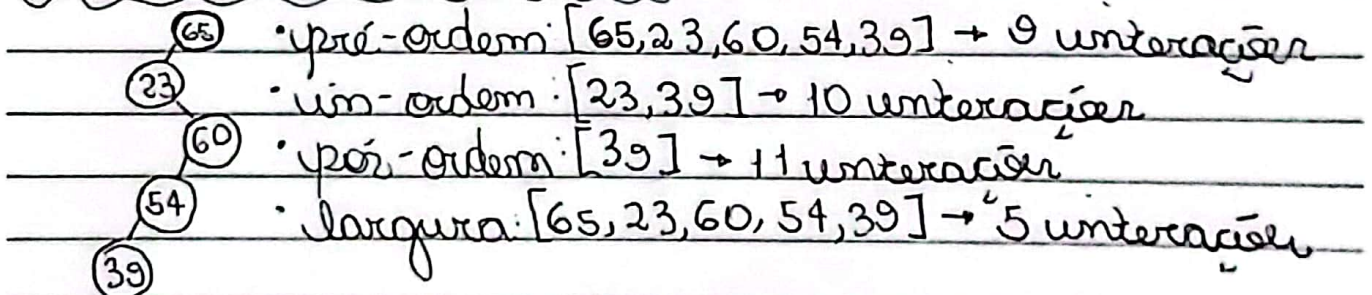 65 · pré-ordem: [65, 23, 60, 54, 39] → 9 interações
23 · in-ordem: [23, 39] → 10 interações
60 · pós-ordem: [39] → 11 interações
54 · largura: [65, 23, 60, 54, 39] → 5 interações
39